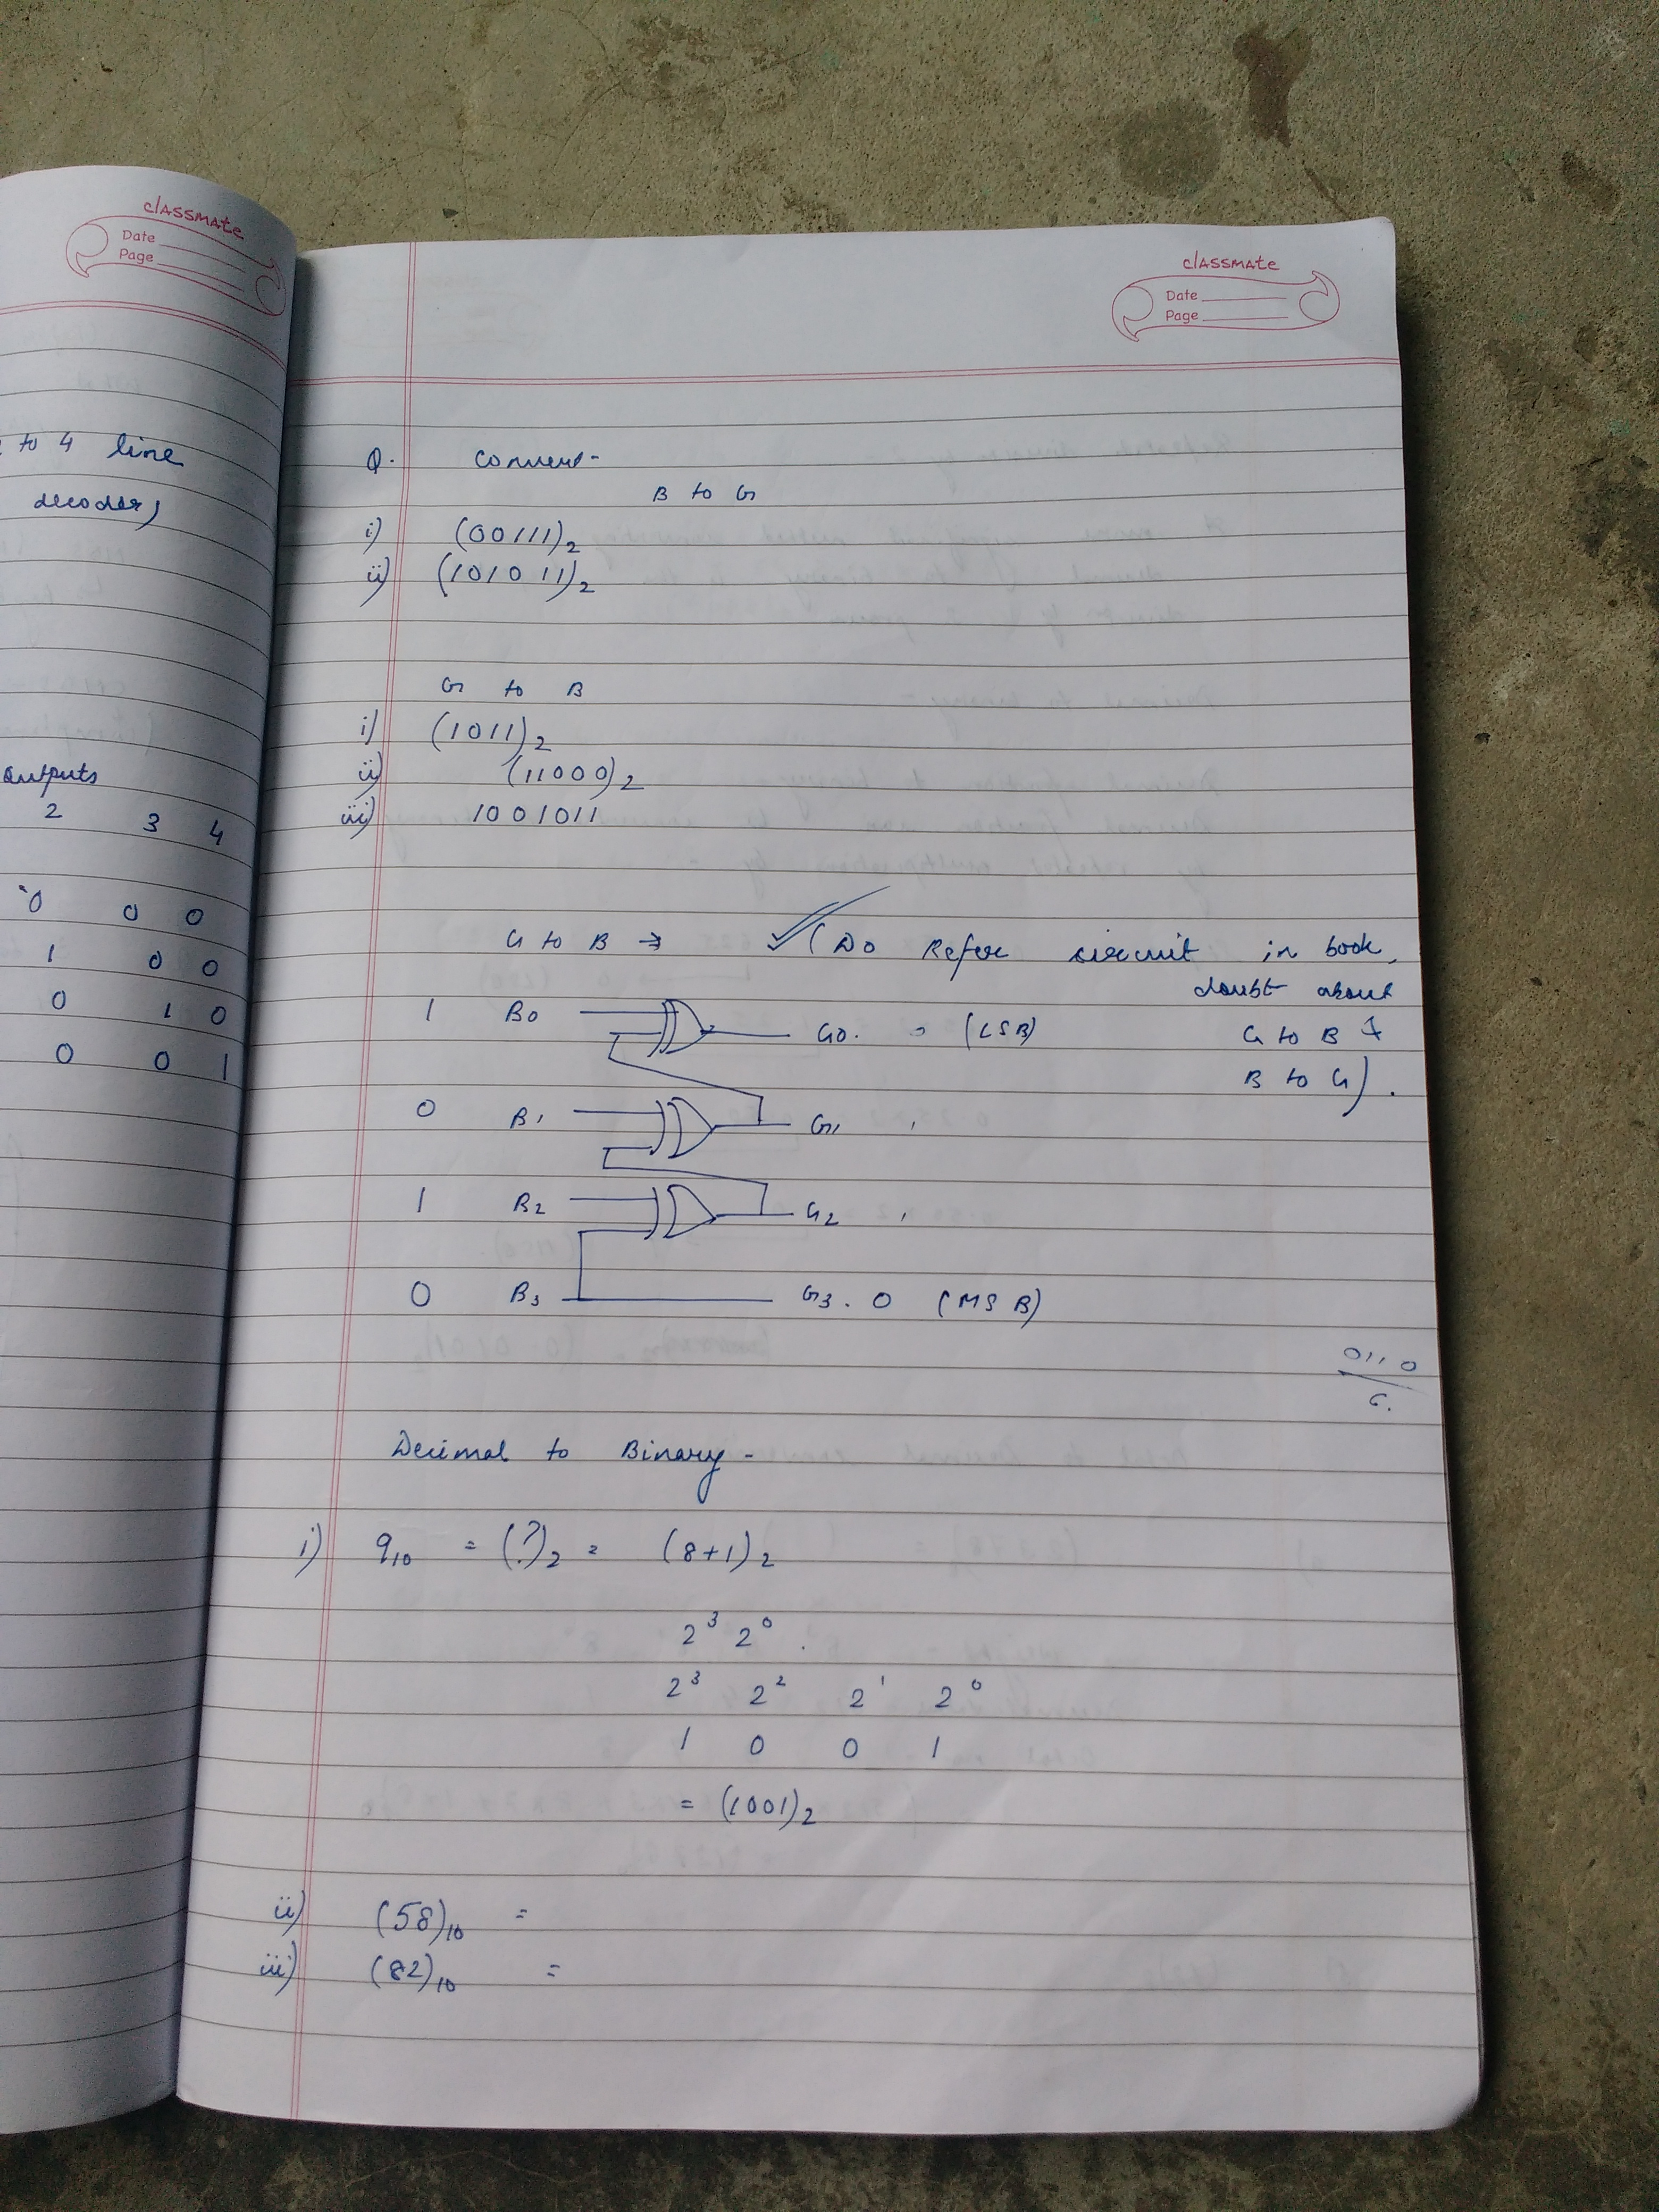 classmate
Date
Page
to 4 line
decoder)
outputs
2 3 4
0 0 0
1 0 0
0 1 0
0 0 1
classmate
Date
Page
Q. Convert-
B to G
i) (00111)2
ii) (101011)2
G to B
i) (1011)2
ii) (11000)2
iii) 1001011
G to B → (Do Refer circuit in book,
doubt about
G to B &
B to G).
1 B0 G0. 0 (LSB)
0 B1 G1 1
1 B2 G2 1
0 B3 G3. 0 (MSB)
0110
6.
Decimal to Binary -
i) 910 = (?)2 = (8+1)2
2³ 2⁰.
2³ 2² 2¹ 2⁰
1 0 0 1
= (1001)2
ii) (58)10 =
iii) (82)10 =